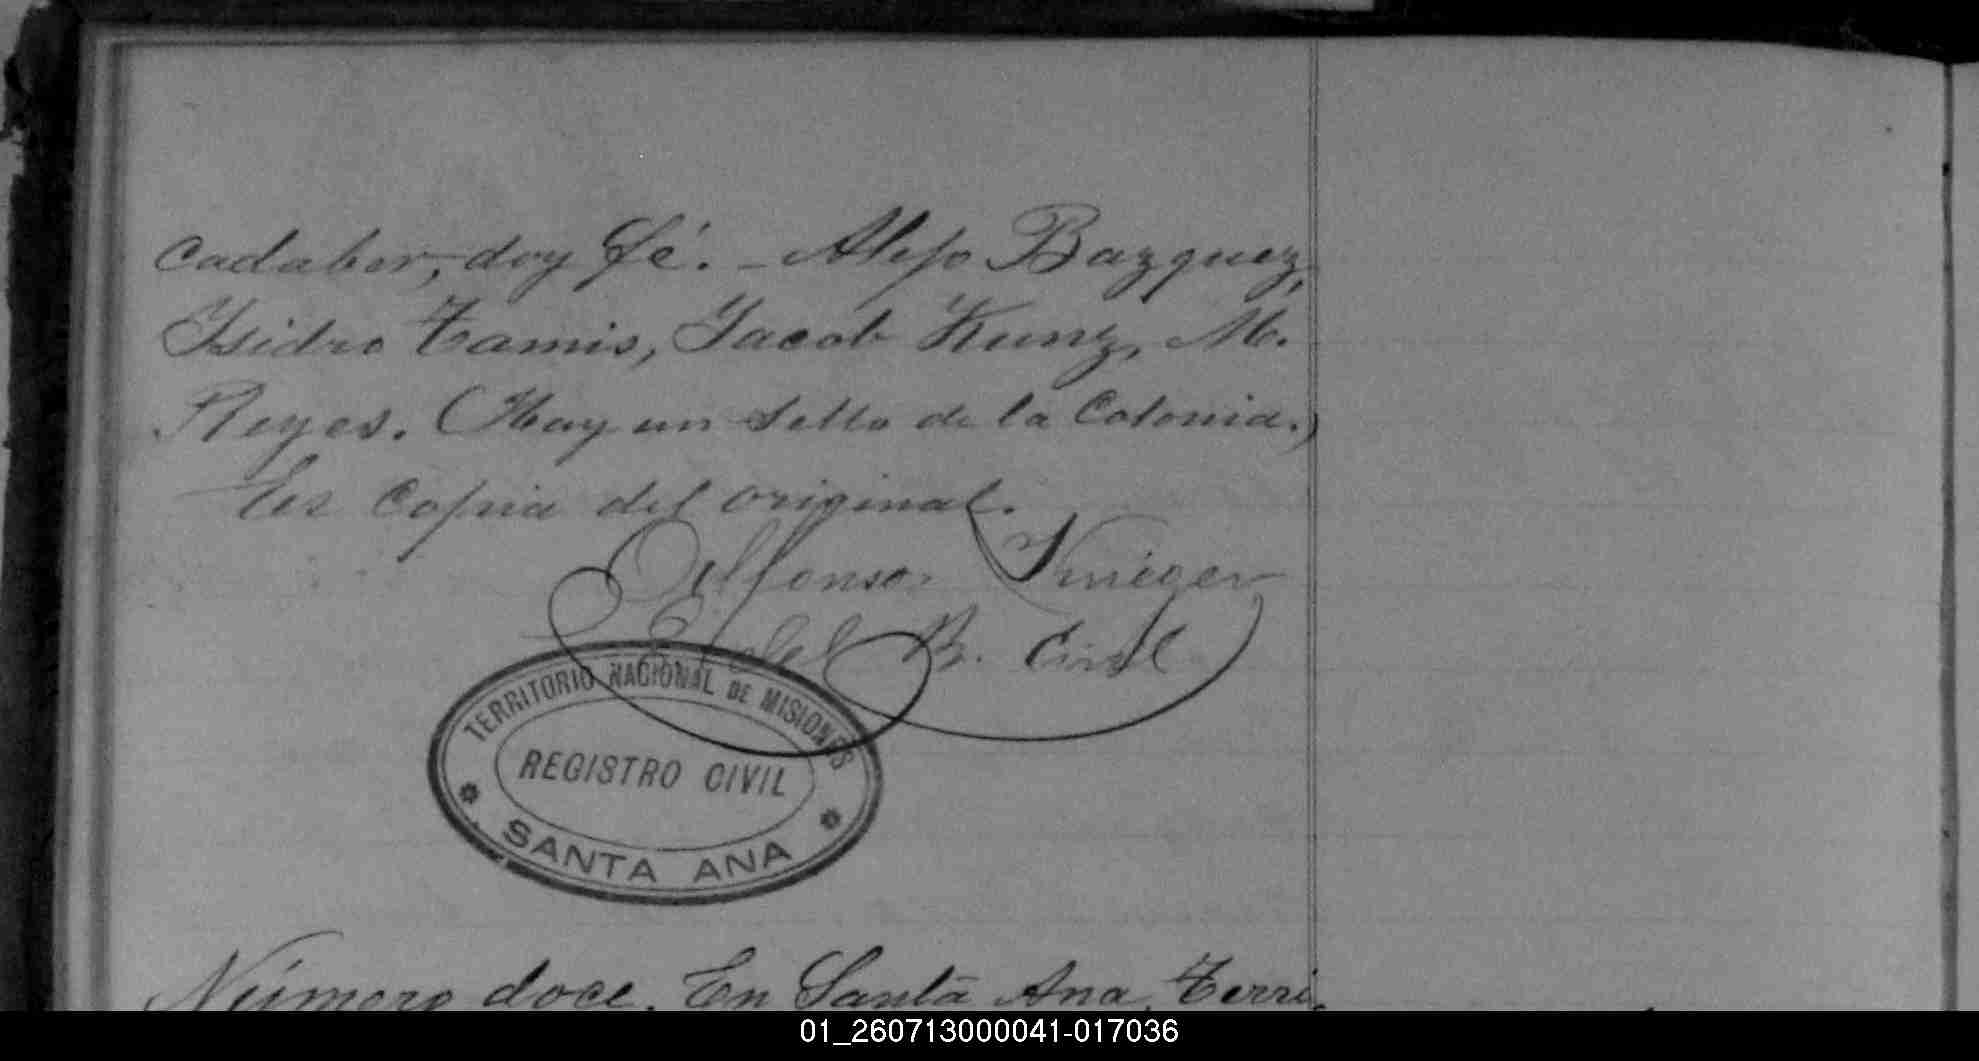 cadaber, doy fé. - Alejo Bazquez,
Ysidro Tamis, Jacob Kunz, M.
Reyes. (Hay un sello de la Colonia.)
Es copia del original.
Alfonso Krieger
E. del R. Civil
TERRITORIO NACIONAL DE MISIONES
REGISTRO CIVIL
SANTA ANA
Número doce. En Santa Ana, Terri-
01_260713000041-017036